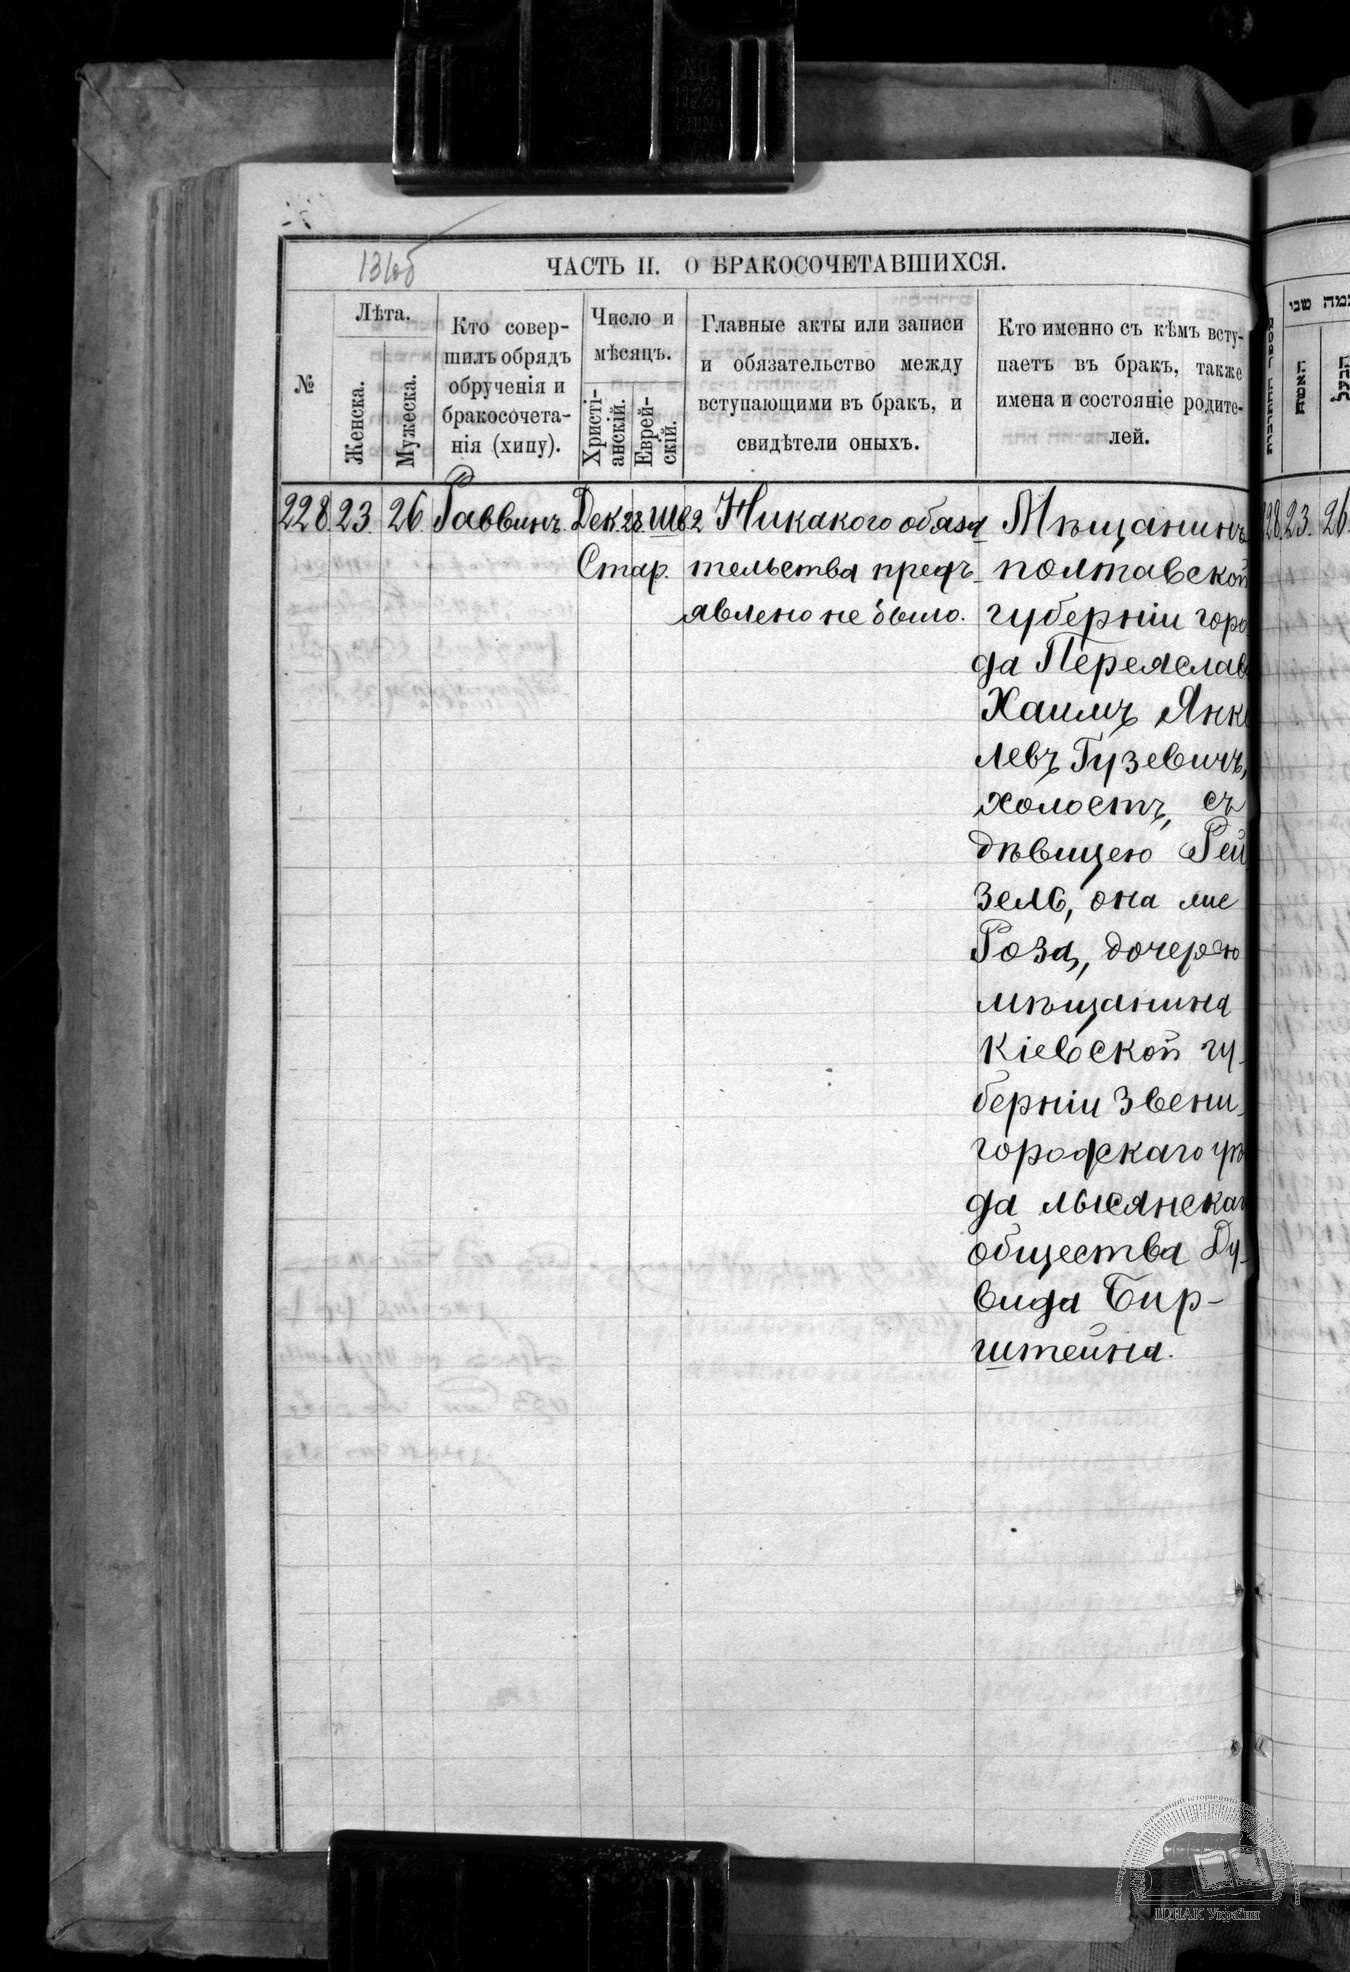 136об
ЧАСТЬ II. О БРАКОСОЧЕТАВШИХСЯ.
№
Лѣта.
Женска.
Мужеска.
Кто совер-
шилъ обрядъ
обрученія и
бракосочета-
нія (хипу).
Число и
мѣсяцъ.
Христі-
анскій.
Еврей-
скій.
Главные акты или записи
и обязательство между
вступающими въ бракъ, и
свидѣтели оныхъ.
Кто именно съ кѣмъ всту-
паетъ въ бракъ, также
имена и состояніе родите-
лей.
228. 23. 26. Раввинъ. Дек. 28. Шв. 2
Стар.
Никакого обяза
тельства предъ-
явлено не было.
Мѣщанинъ
полтавской
губерніи горо
да Переяслав
Хаимъ Янке
левъ Гузевичъ,
холостъ, съ
дѣвицею Рей
зель, она же
Роза, дочерью
мѣщанина
Кіевской гу-
берніи Звени-
городскаго уѣз
да лысянскаго
общества Ду-
вида Бир-
штейна.
האשה
הבעל
228. 23. 26.
ЦДІАК України